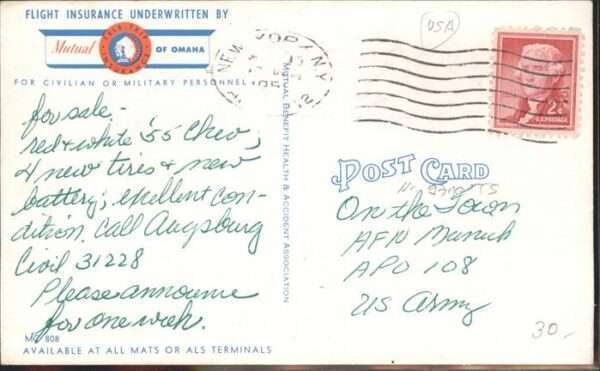 FLIGHT INSURANCE UNDERWRITTEN BY
Mutual
TELE-TRIP
INSURANCE
OF OMAHA
FOR CIVILIAN OR MILITARY PERSONNEL
for sale -
red & white '55 Chev,
4 new tires & new
battery; exellent con-
dition. Call Augsburg
Civil 31228
Please announce
for one week.
MO 808
AVAILABLE AT ALL MATS OR ALS TERMINALS
MUTUAL BENEFIT HEALTH & ACCIDENT ASSOCIATION
NEW YORK, N.Y.
USA
2¢
U.S. POSTAGE
POST CARD
On the Town
AFN Munich
APO 108
US Army
30-